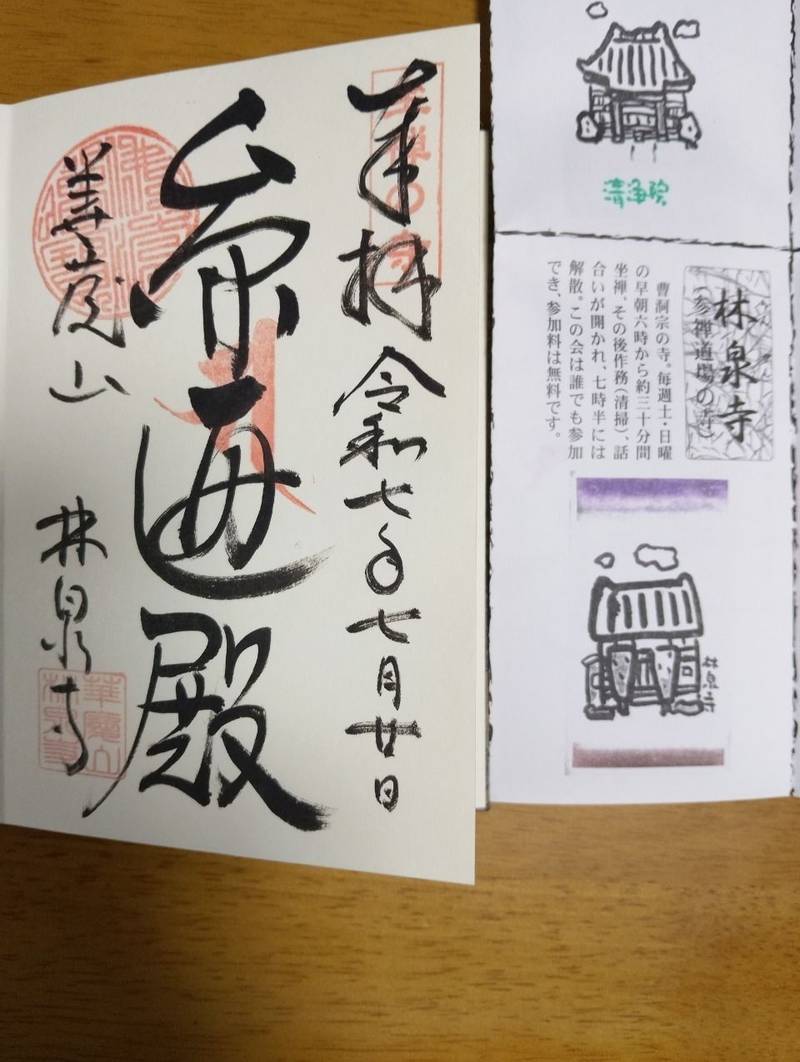 奉拝 令和七年七月廿日
坐禅の寺
殿
山 林泉寺
清浄院
林泉寺
(参禅道場の寺)
曹洞宗の寺。毎週土・日曜
の早朝六時から約三十分間
坐禅、その後作務(清掃)、話
合いが開かれ、七時半には
解散。この会は誰でも参加
でき、参加料は無料です。
林泉寺